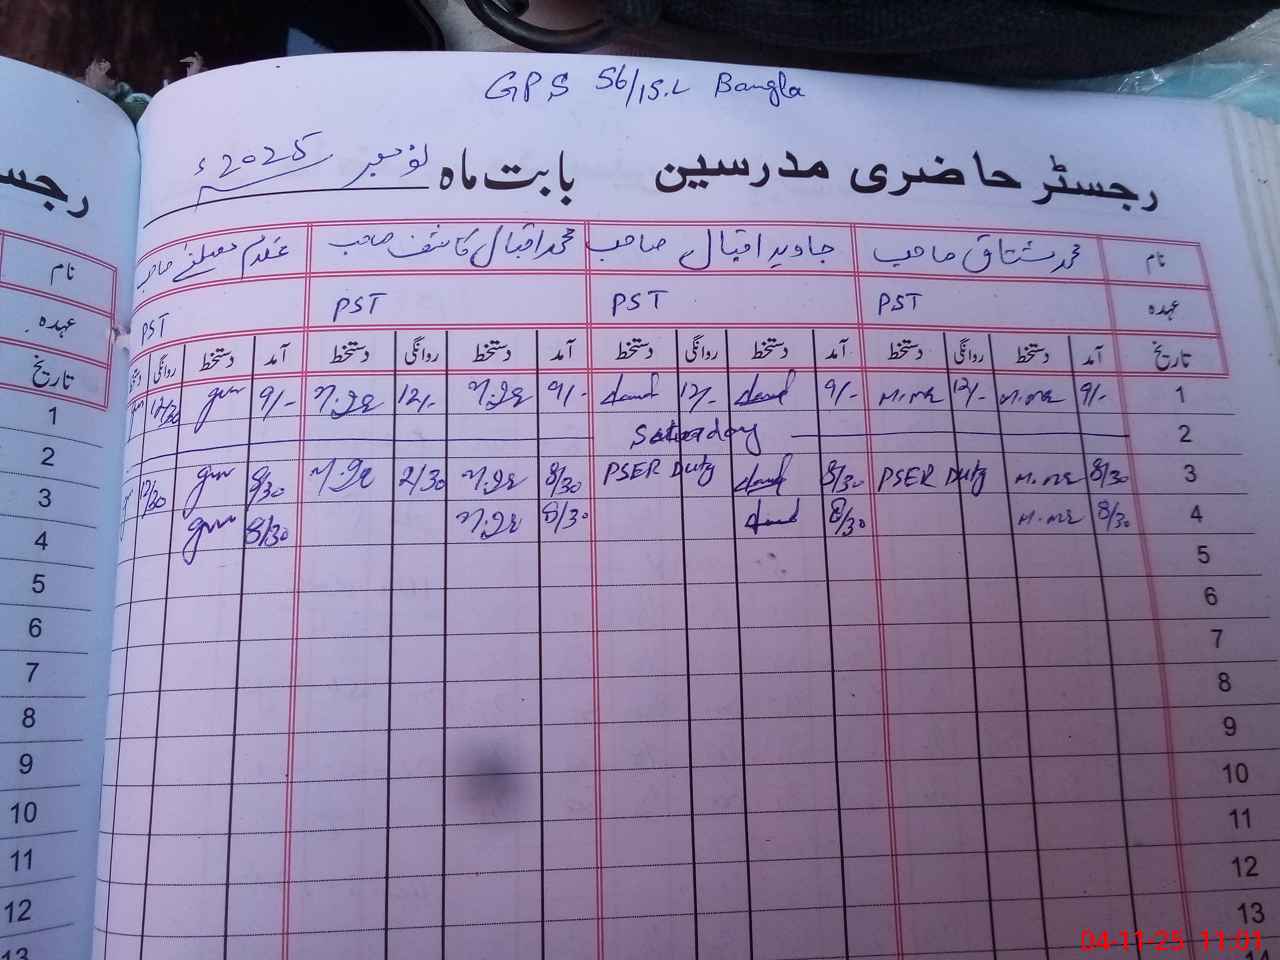 GPS 56/15.L Bangla
رجسٹر حاضری مدرسین بابت ماہ نومبر 2025ء
نام محمد مشتاق صاحب جاوید اقبال صاحب محمد اقبال کاشف صاحب غلام مصطفیٰ صاحب
عہدہ PST PST PST PST
تاریخ آمد دستخط روانگی دستخط آمد دستخط روانگی دستخط آمد دستخط روانگی دستخط آمد دستخط روانگی
1 9/- 12/- 9/- 12/- 9/- 12/- 9/- 12/30
2
3 8/30 PSER Duty 8/30 PSER Duty 8/30 2/30 8/30
4 8/30 8/30 8/30 8/30
5
6
7
8
9
10
11
12
13
14
رجس
نام
عہدہ
تاریخ
1
2
3
4
5
6
7
8
9
10
11
12
13
04-11-25 11:01